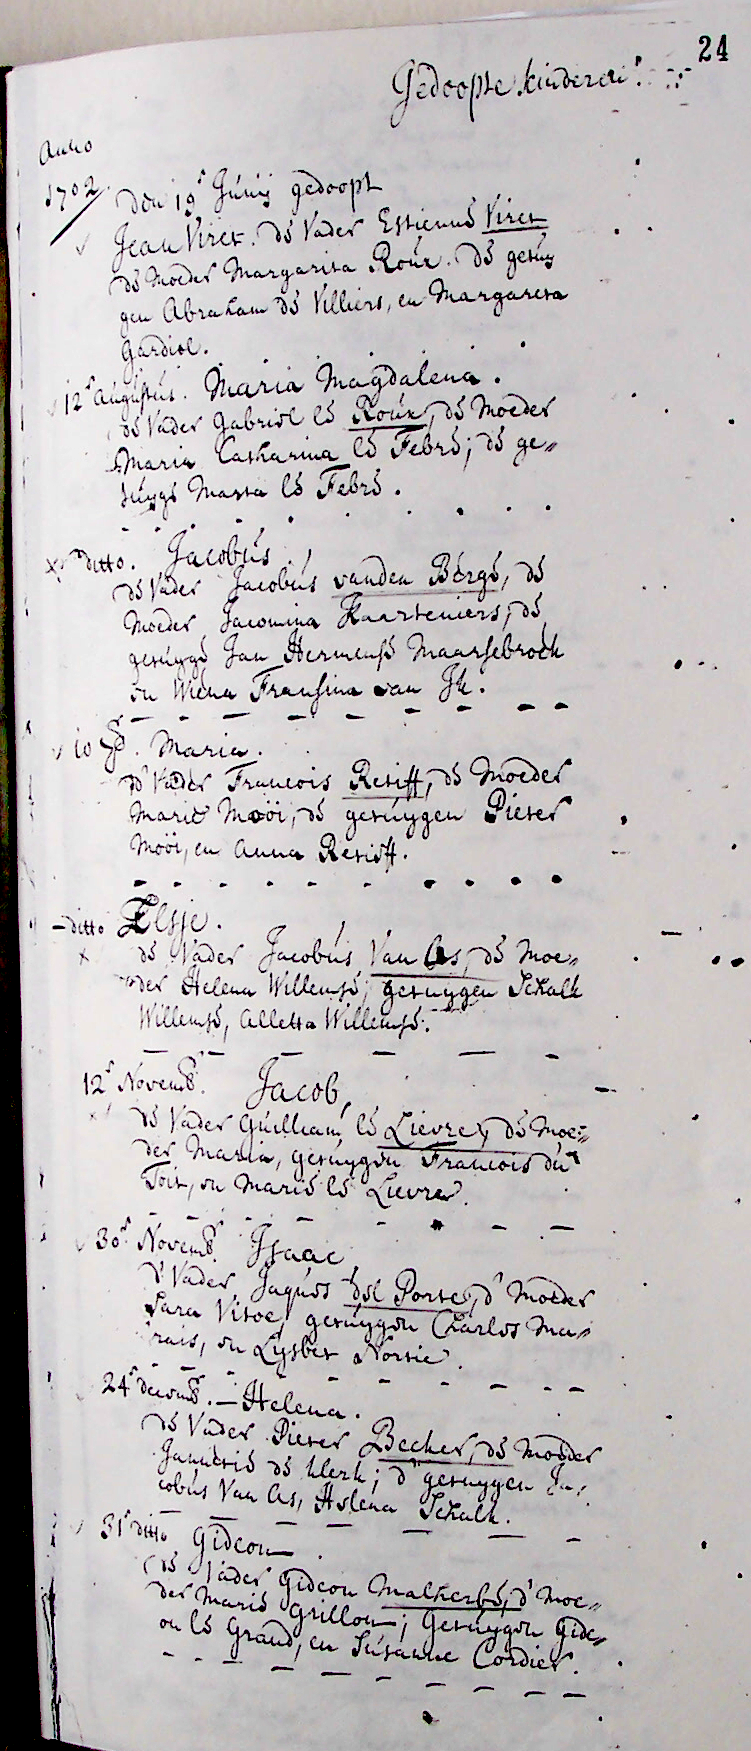 24
Gedoopte kinderen.
Anno
1702.
den 19e Junij gedoopt
Jean Viret. de Vader Estienne Viret
de Moeder Margarita Roux. de getuy
gen Abraham de Villiers, en Margareta
Gardiol.
12e Augustus. Maria Magdalena.
de Vader Gabriel le Roux, de Moeder
Maria Catharina le Febre; de ge„
tuyge Marta le Febre.
ditto. Jacobus,
de Vader Jacobus vanden Berge, de
Moeder Jacomina Kaarteniers; de
getuyge Jan Hermense Maarsebroek
en Wiena Fransina van
10 Maria.
d' Vader Francois Retiff, de Moeder
Marie Mooi, de getuygen Pieter
Mooi, en Anna Retiff.
ditto Elsje.
de Vader Jacobus Van As, de Moe„
der Helena Willemse, getuygen Schalk
Willemse, Alletta Willemse.
12e Novemb. Jacob,
de Vader Guilliam le Lievre, de Moe„
der Maria, getuygen Francois du
Toit, en Marie le Lievre.
30e Novemb. Isaac
d' Vader Jaques del Porte, d' Moeder
Sara Vitoe, getuygen Charles Ma„
rais, en Lysbet Nortie.
24e decemb. — Helena.
de Vader Pieter Becker, de Moeder
de klerk; d' getuygen Ja„
cobus Van As, Helena Schalk.
31e ditto Gideon
de Vader Gideon Malherbe, d' Moe„
der Marie Grillon; Getuygen Gide„
on le Grand, en Susanne Cordier.